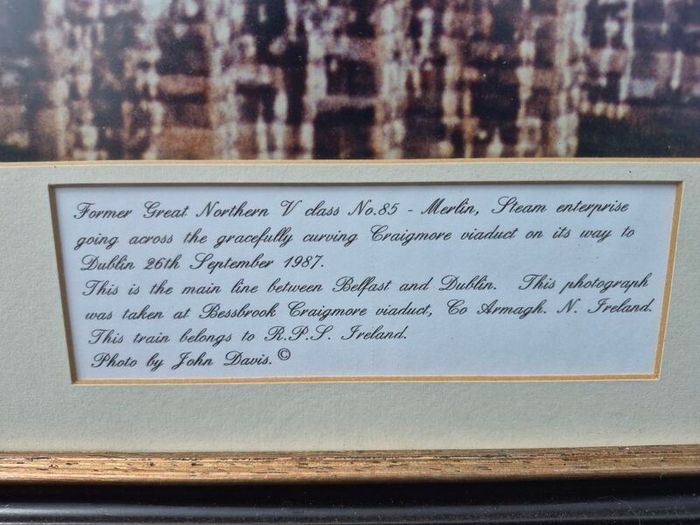 Former Great Northern V class No.85 - Merlin, Steam enterprise
going across the gracefully curving Craigmore viaduct on its way to
Dublin 26th September 1987.
This is the main line between Belfast and Dublin. This photograph
was taken at Bessbrook Craigmore viaduct, Co Armagh. N. Ireland.
This train belongs to R.P.S. Ireland.
Photo by John Davis.©